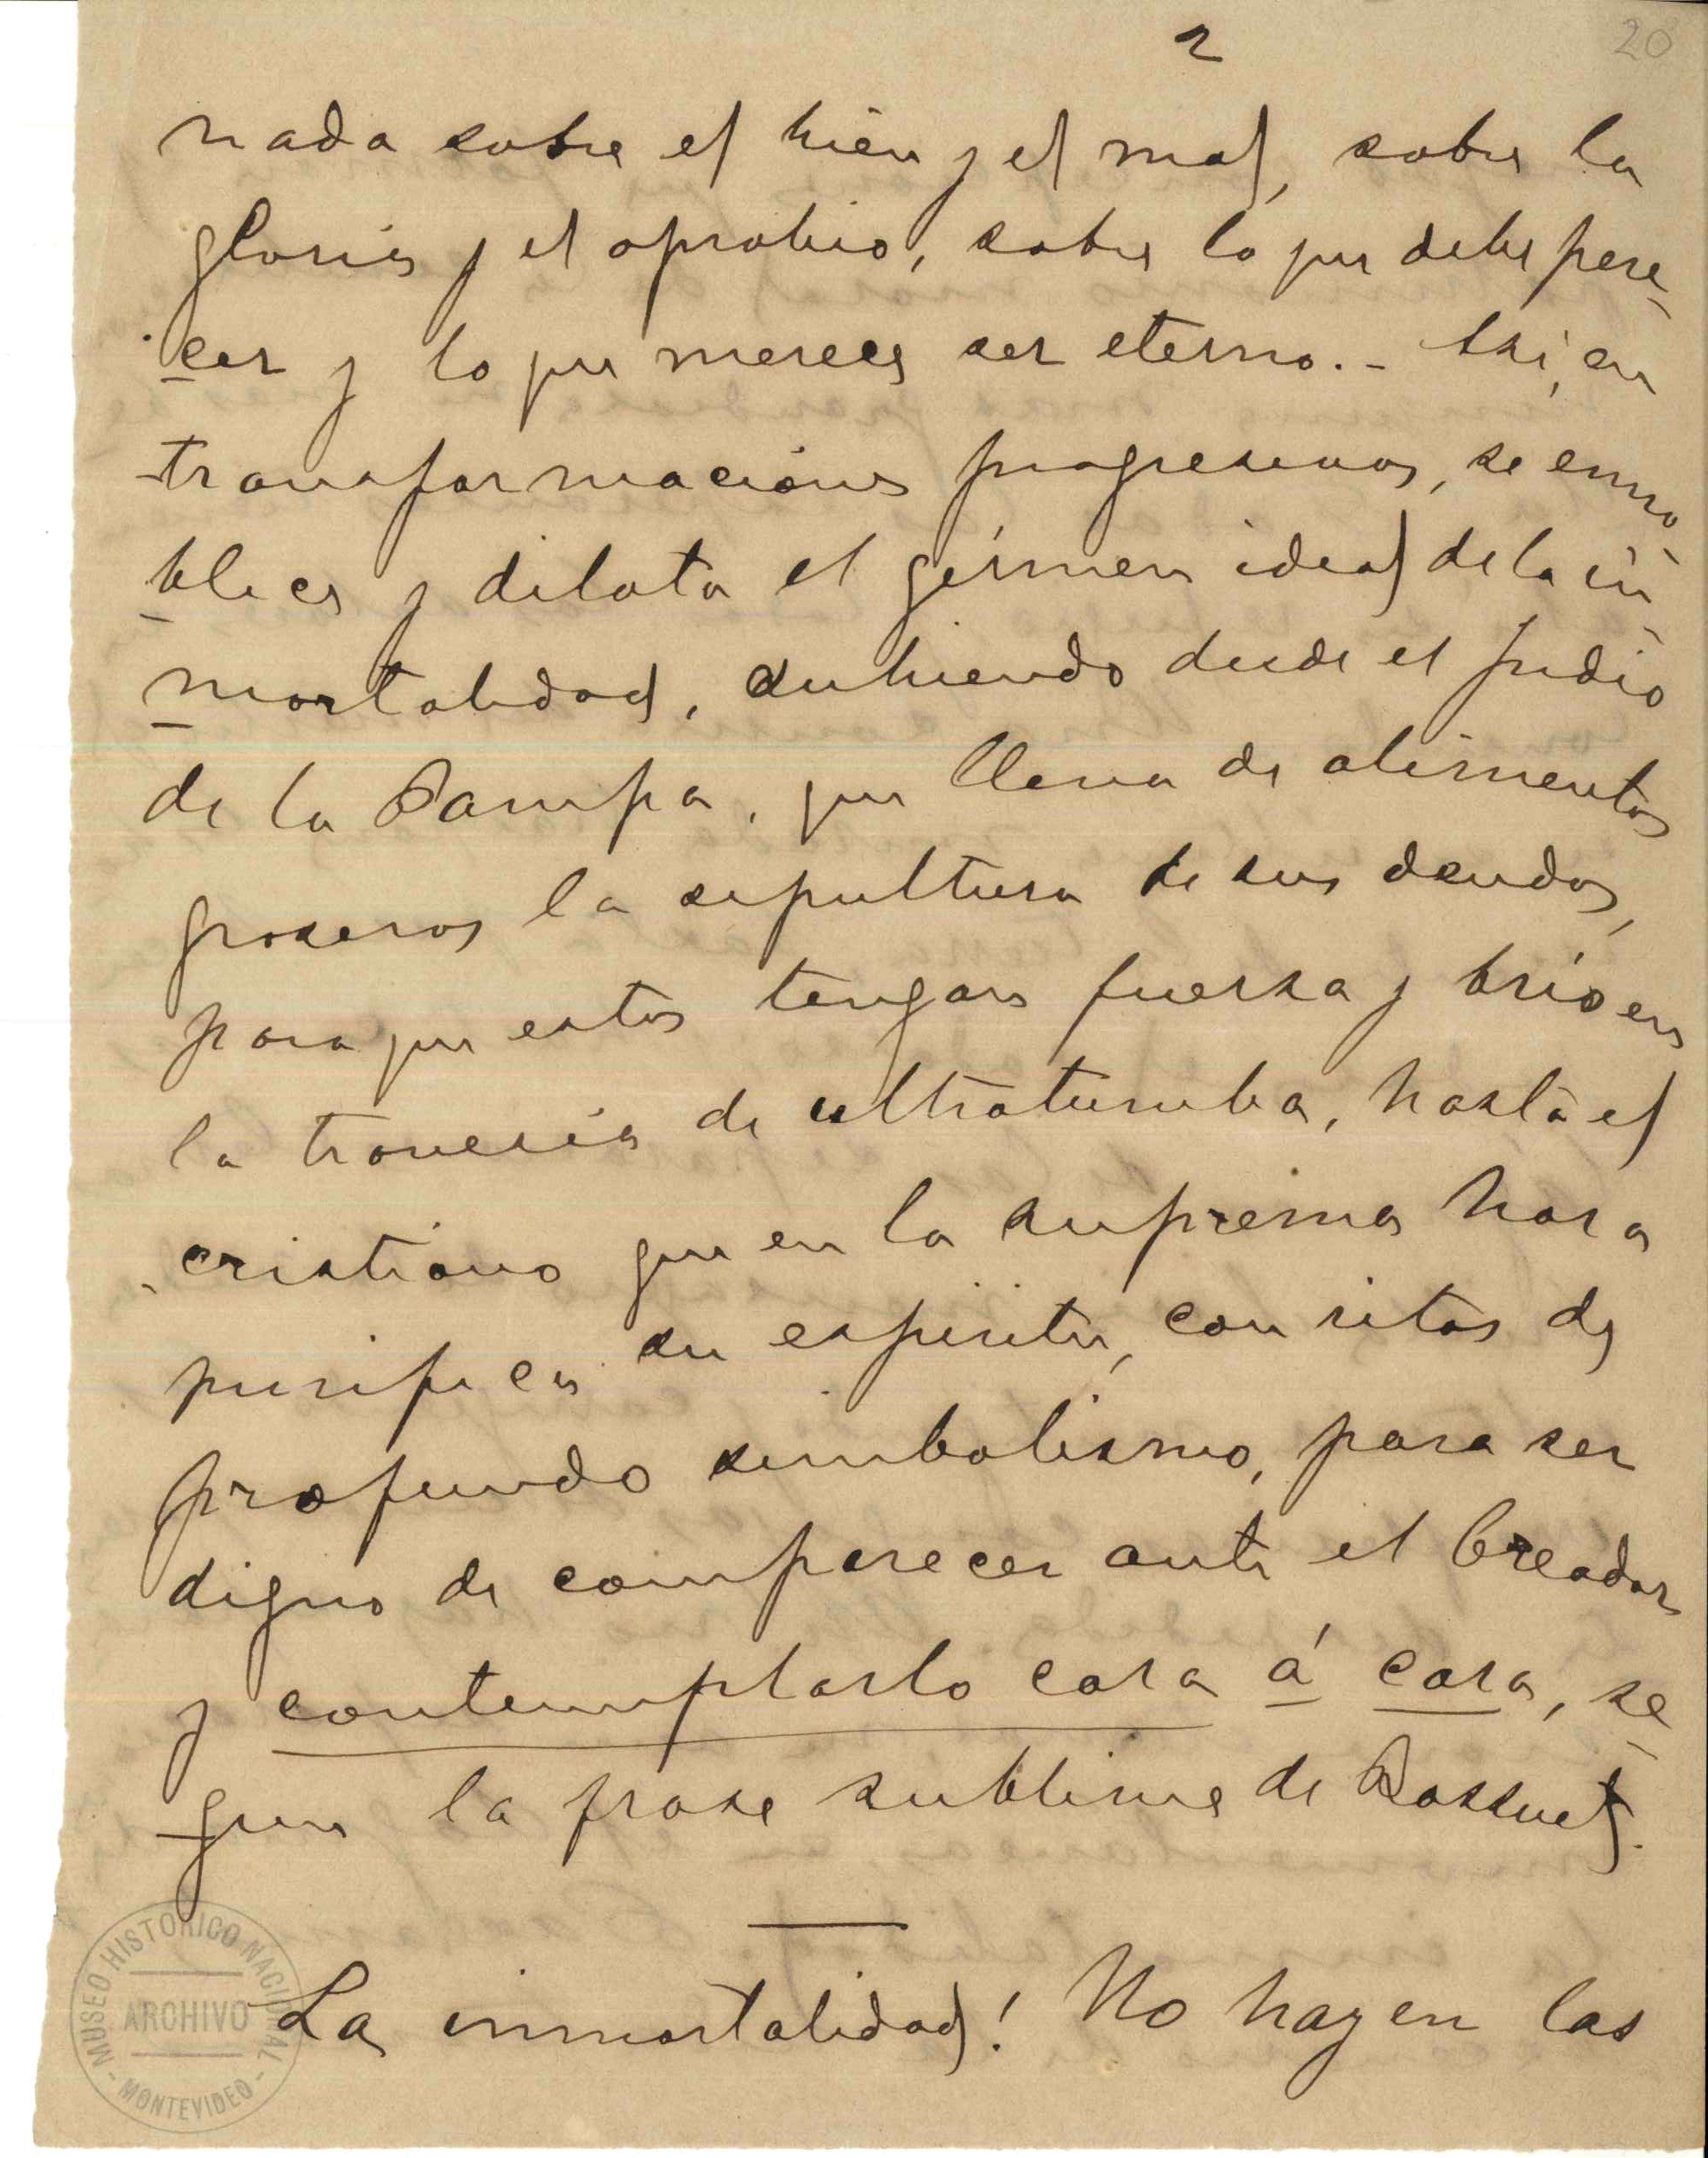 2
20
nada sobre el bien y el mal, sobre la
gloria y el oprobio, sobre lo que debe pere-
cer y lo que merece ser eterno.- Asi, en
transformaciones progresivas, se enno-
blece y dilata el gérmen ideal de la in-
mortalidad, subiendo desde el indio
de la Pampa, que llena de alimentos
groseros la sepultura de sus deudos,
para que estos tengan fuerza y brío en
la travesia de ultratumba, hasta el
cristiano que en la suprema hora
purifica su espiritu, con ritos de
profundo simbolismo, para ser
digno de comparecer ante el Creador
y contemplarlo cara á cara, se-
gun la frase sublime de Bossuet.
La inmortalidad! No hay en las
MUSEO HISTORICO NACIONAL
ARCHIVO
- MONTEVIDEO -